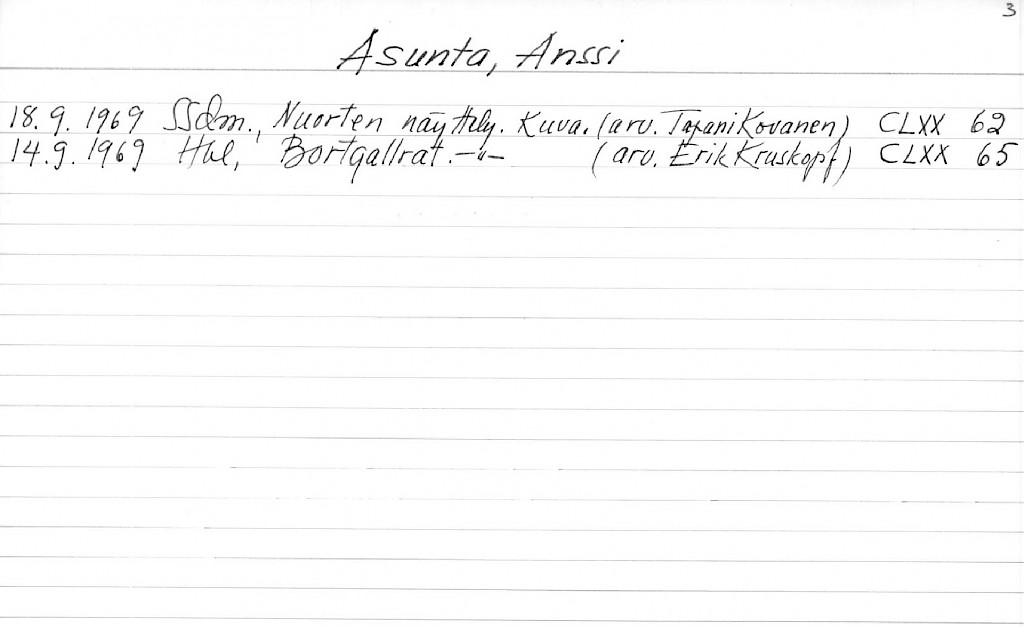 3
Asunta, Anssi
18.9.1969 SSdm., Nuorten näyttely. Kuva. (arv. Tapani Kovanen) CLXX 62
14.9.1969 Hbl, Bortgallrat. -"- (arv. Erik Kruskopf) CLXX 65